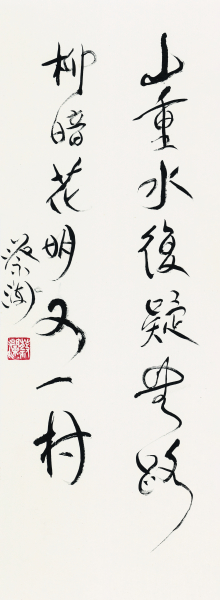 山重水復疑無路
柳暗花明又一村
蔡瀾